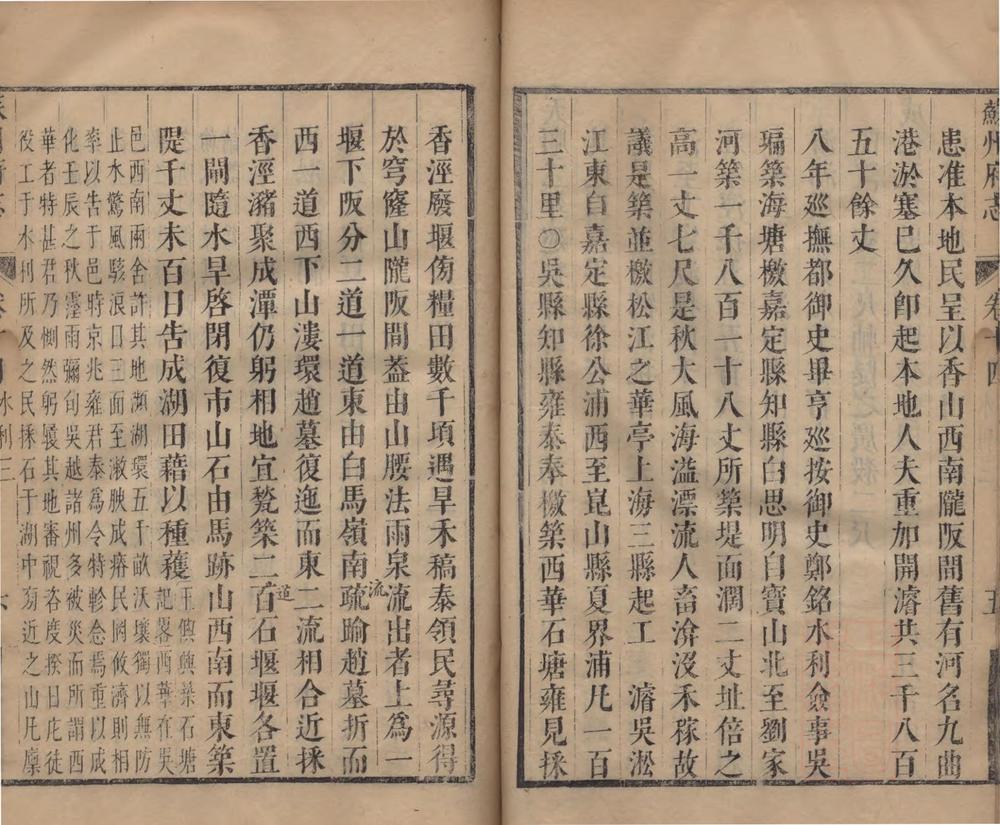 蘇州府志 卷十四 五
患准本地民呈以香山西南隴阪間舊有河名九曲
港淤塞已久卽起本地人夫重加開濬共三千八百
五十餘丈
八年廵撫都御史畢亨廵按御史鄭銘水利僉事吳
㻞築海塘檄嘉定縣知縣白思明自寶山北至劉家
河築一千八百一十八丈所築堤面濶二丈址倍之
高一丈七尺是秋大風海溢漂流人畜渰沒禾稼故
議是築並檄松江之華亭上海三縣起工 濬吳淞
江東自嘉定縣徐公浦西至崑山縣夏界浦凡一百
三十里○吳縣知縣雍泰奉檄築西華石塘雍見採
香涇廢堰傷糧田數千項遇旱禾稿泰領民尋源得
於穹窿山隴阪間蓋由山腰法雨泉流出者上爲一
堰下阪分二道一道東由白馬嶺南流疏踰趙墓折而
西一道西下山漊環趙墓復迤而東二流相合近採
香涇瀦聚成潭仍躬相地宜甃築二百道石堰堰各置
一閘隨水旱啓閉復市山石由馬跡山西南而東築
隄千丈未百日告成湖田藉以種穫
王㒜興築石塘
記畧西華在吳
邑西南兩舍許其地瀕湖環五千畝沃壤獨以無防
止水驚風駭浪日三面至漱腴成瘠民罔攸濟則相
率以告于邑時京兆雍君泰爲令特軫念焉重以成
化壬辰之秋霪雨彌旬吳越諸州多被災而所謂西
華者特甚君乃惻然躬履其地審視咨度揆日庀徒
役工于水利所及之民採石于湖中旁近之山凡廩
水利三